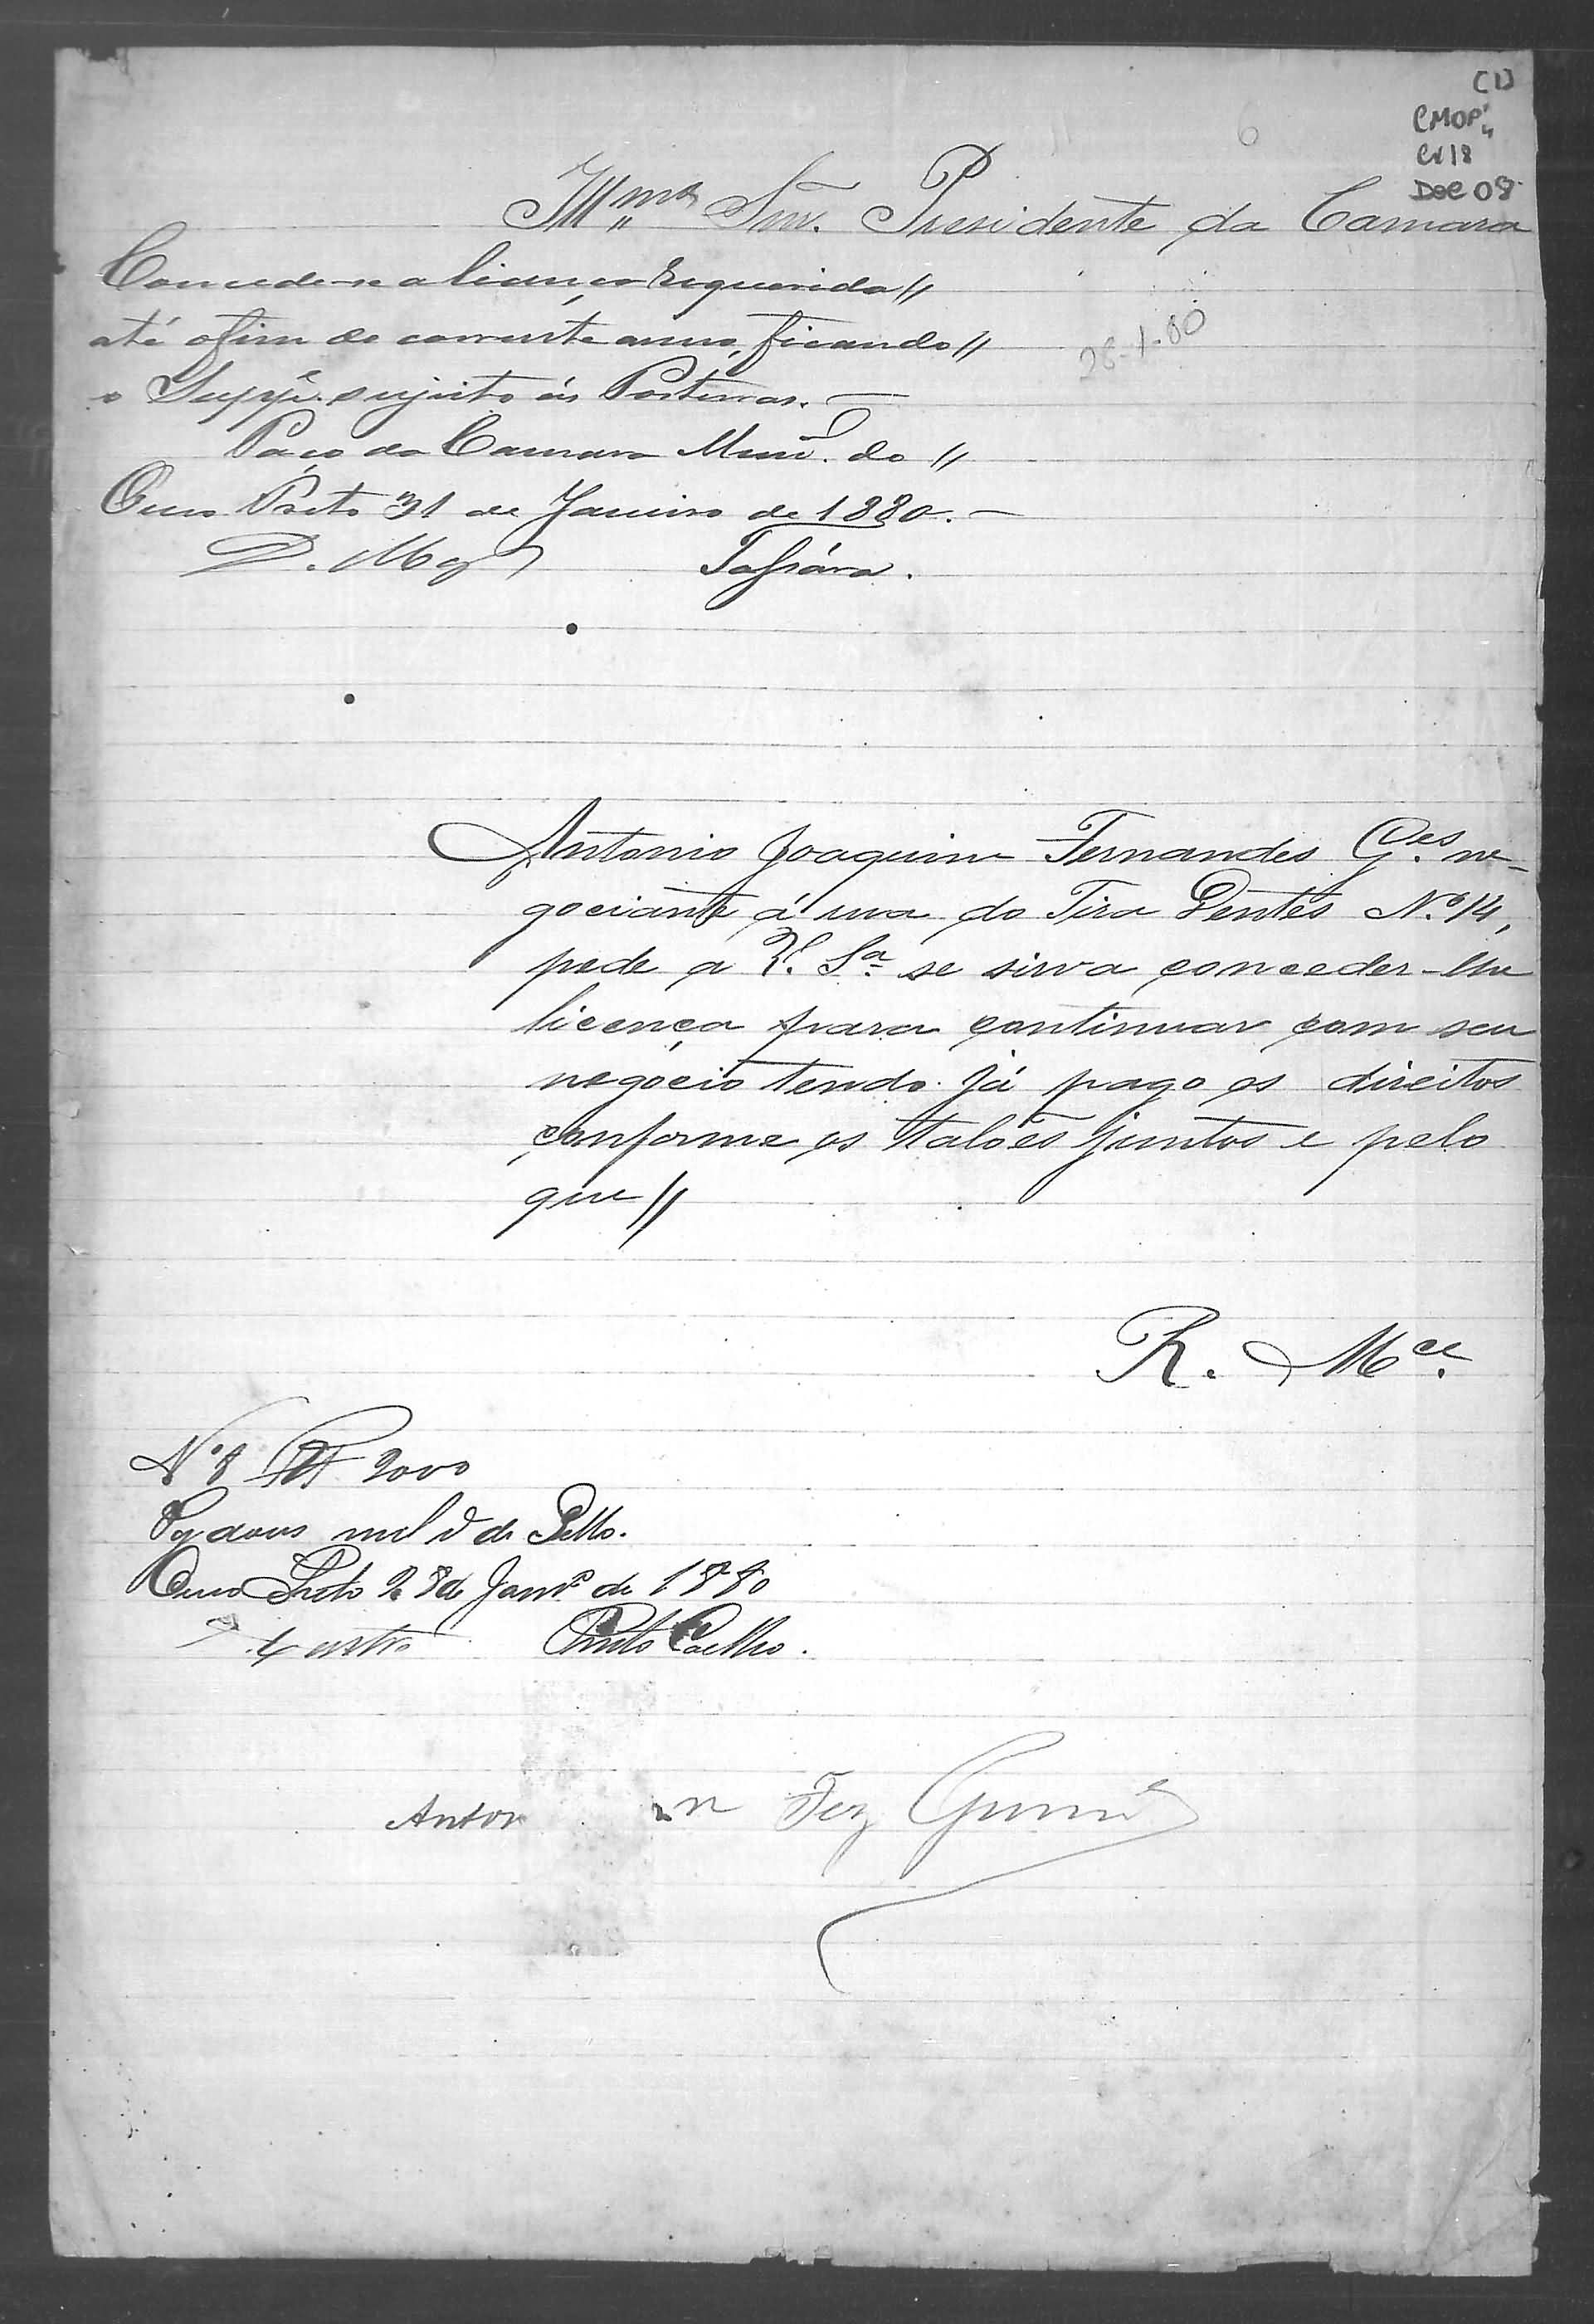 (1)
CMOP
Cx 18
Doc 08
6
Illmo Snr. Presidente da Camara
Concede-se a licença requerida //
até o fim do corrente anno, ficando //
28-1-80
o Suppe. sujeito ás Posturas. —
Paço da Camara Munal. do //
Ouro Preto 31 de Janeiro de 1880. —
Tassára.
Antonio Joaquim Fernandes G.es ne-
gociante á rua do Tira Dentes N.º 14,
pede a V. Sª se sirva conceder-lhe
licença para continuar com seu
negocio tendo já pago os direitos
conforme os talões juntos e pelo
que //
R. Mce.
Nº 8 2000
Pg dous mil rs de Sello.
Ouro Preto 28 de Janro de 1880
Castro Pinto Coelho.
Anton m Fez Guime